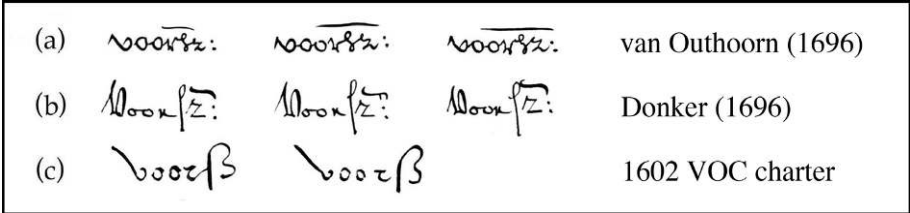 (a) voorsz: voorsz: voorsz: van Outhoorn (1696)
(b) Voorſz: Voorſz: Voorſz: Donker (1696)
(c) voorß voorß 1602 VOC charter